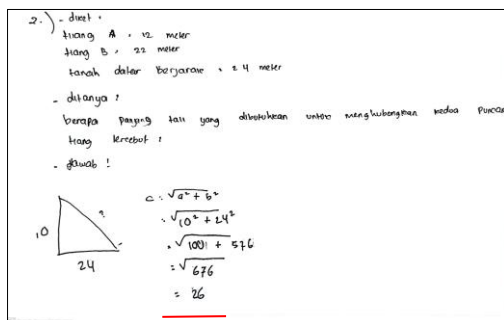 2.) - diket :
tiang A : 12 meter
tiang B : 22 meter
tanah datar berjarak : 24 meter
- ditanya ?
berapa panjang tali yang dibutuhkan untuk menghubungkan kedua puncak
tiang tersebut ?
- Jawab !
c : √a² + b²
: √10² + 24²
: √100 + 576
= √676
= 26
10
?
24